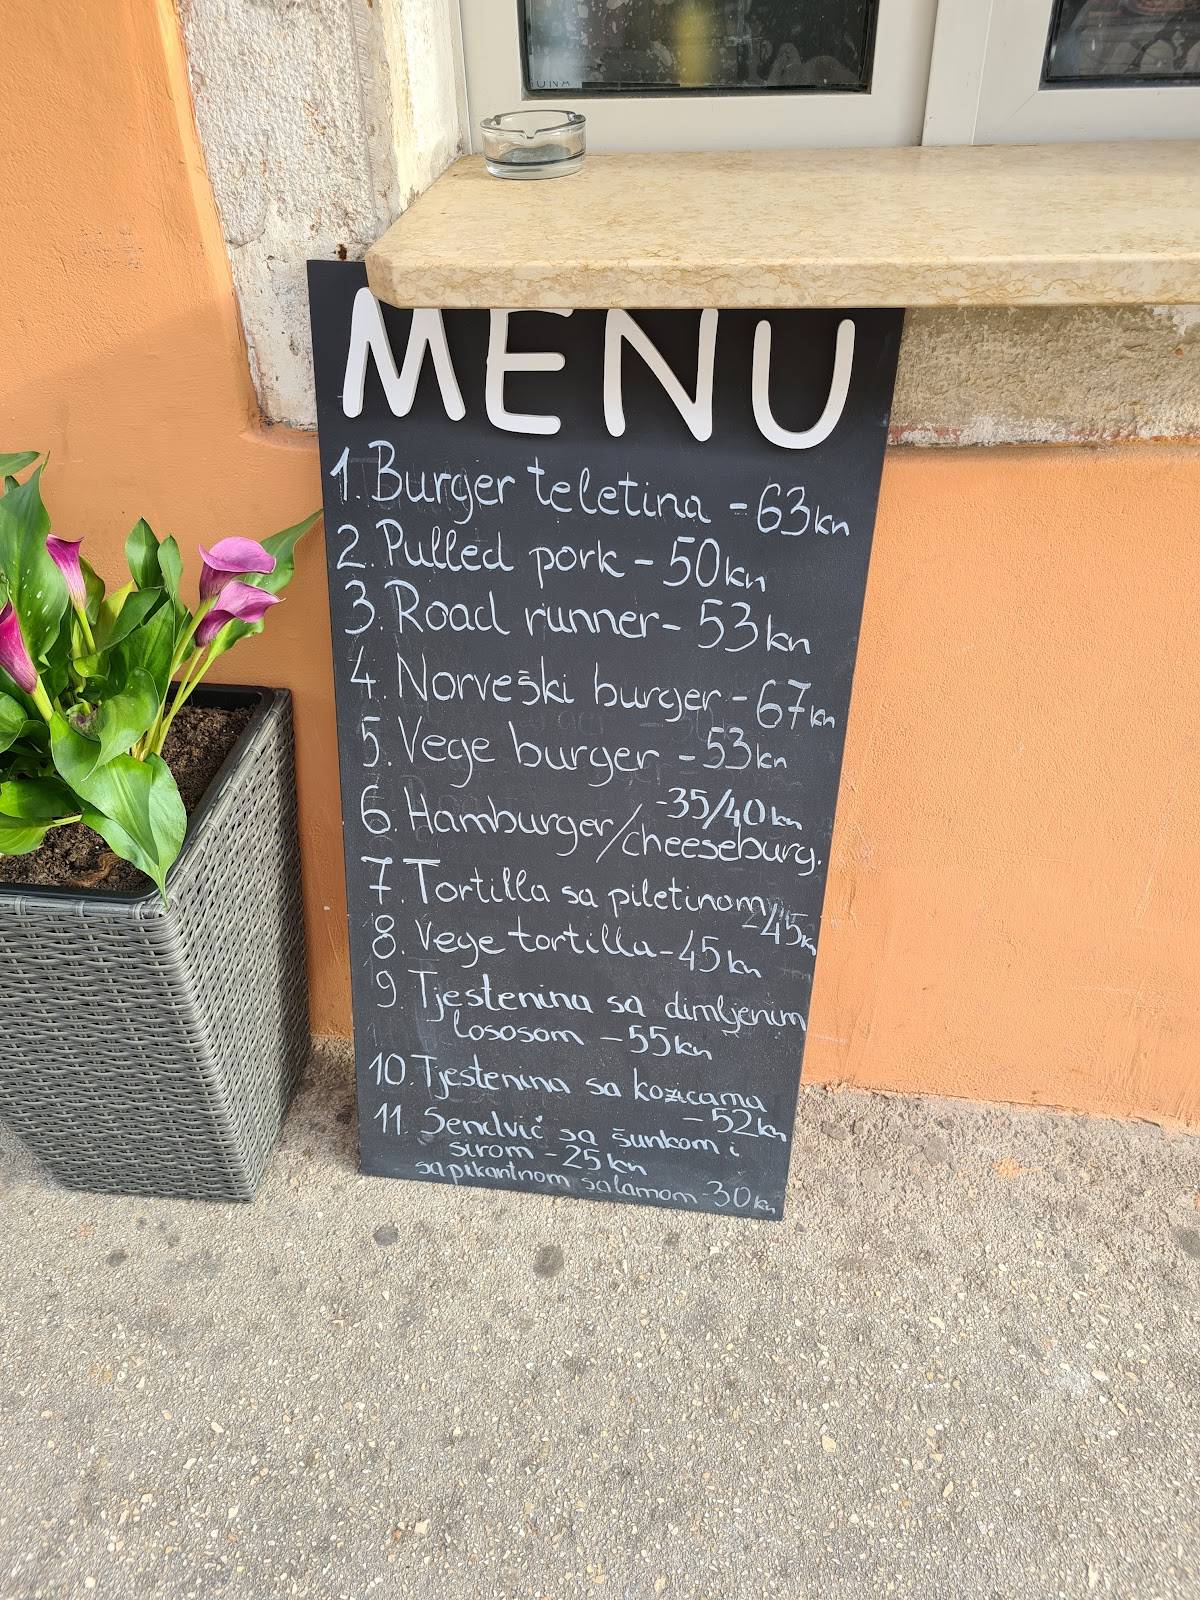 MENU
1. Burger teletina - 63kn
2. Pulled pork - 50kn
3. Road runner - 53kn
4. Norveški burger - 67kn
5. Vege burger - 53kn
6. Hamburger/cheeseburg. - 35/40kn
7. Tortilla sa piletinom
- 45kn
8. Vege tortilla - 45kn
9. Tjestenina sa dimljenim
lososom - 55kn
10. Tjestenina sa kozicama
- 52kn
11. Sendvić sa šunkom i
sirom - 25kn
sa pikantnom salamom - 30kn